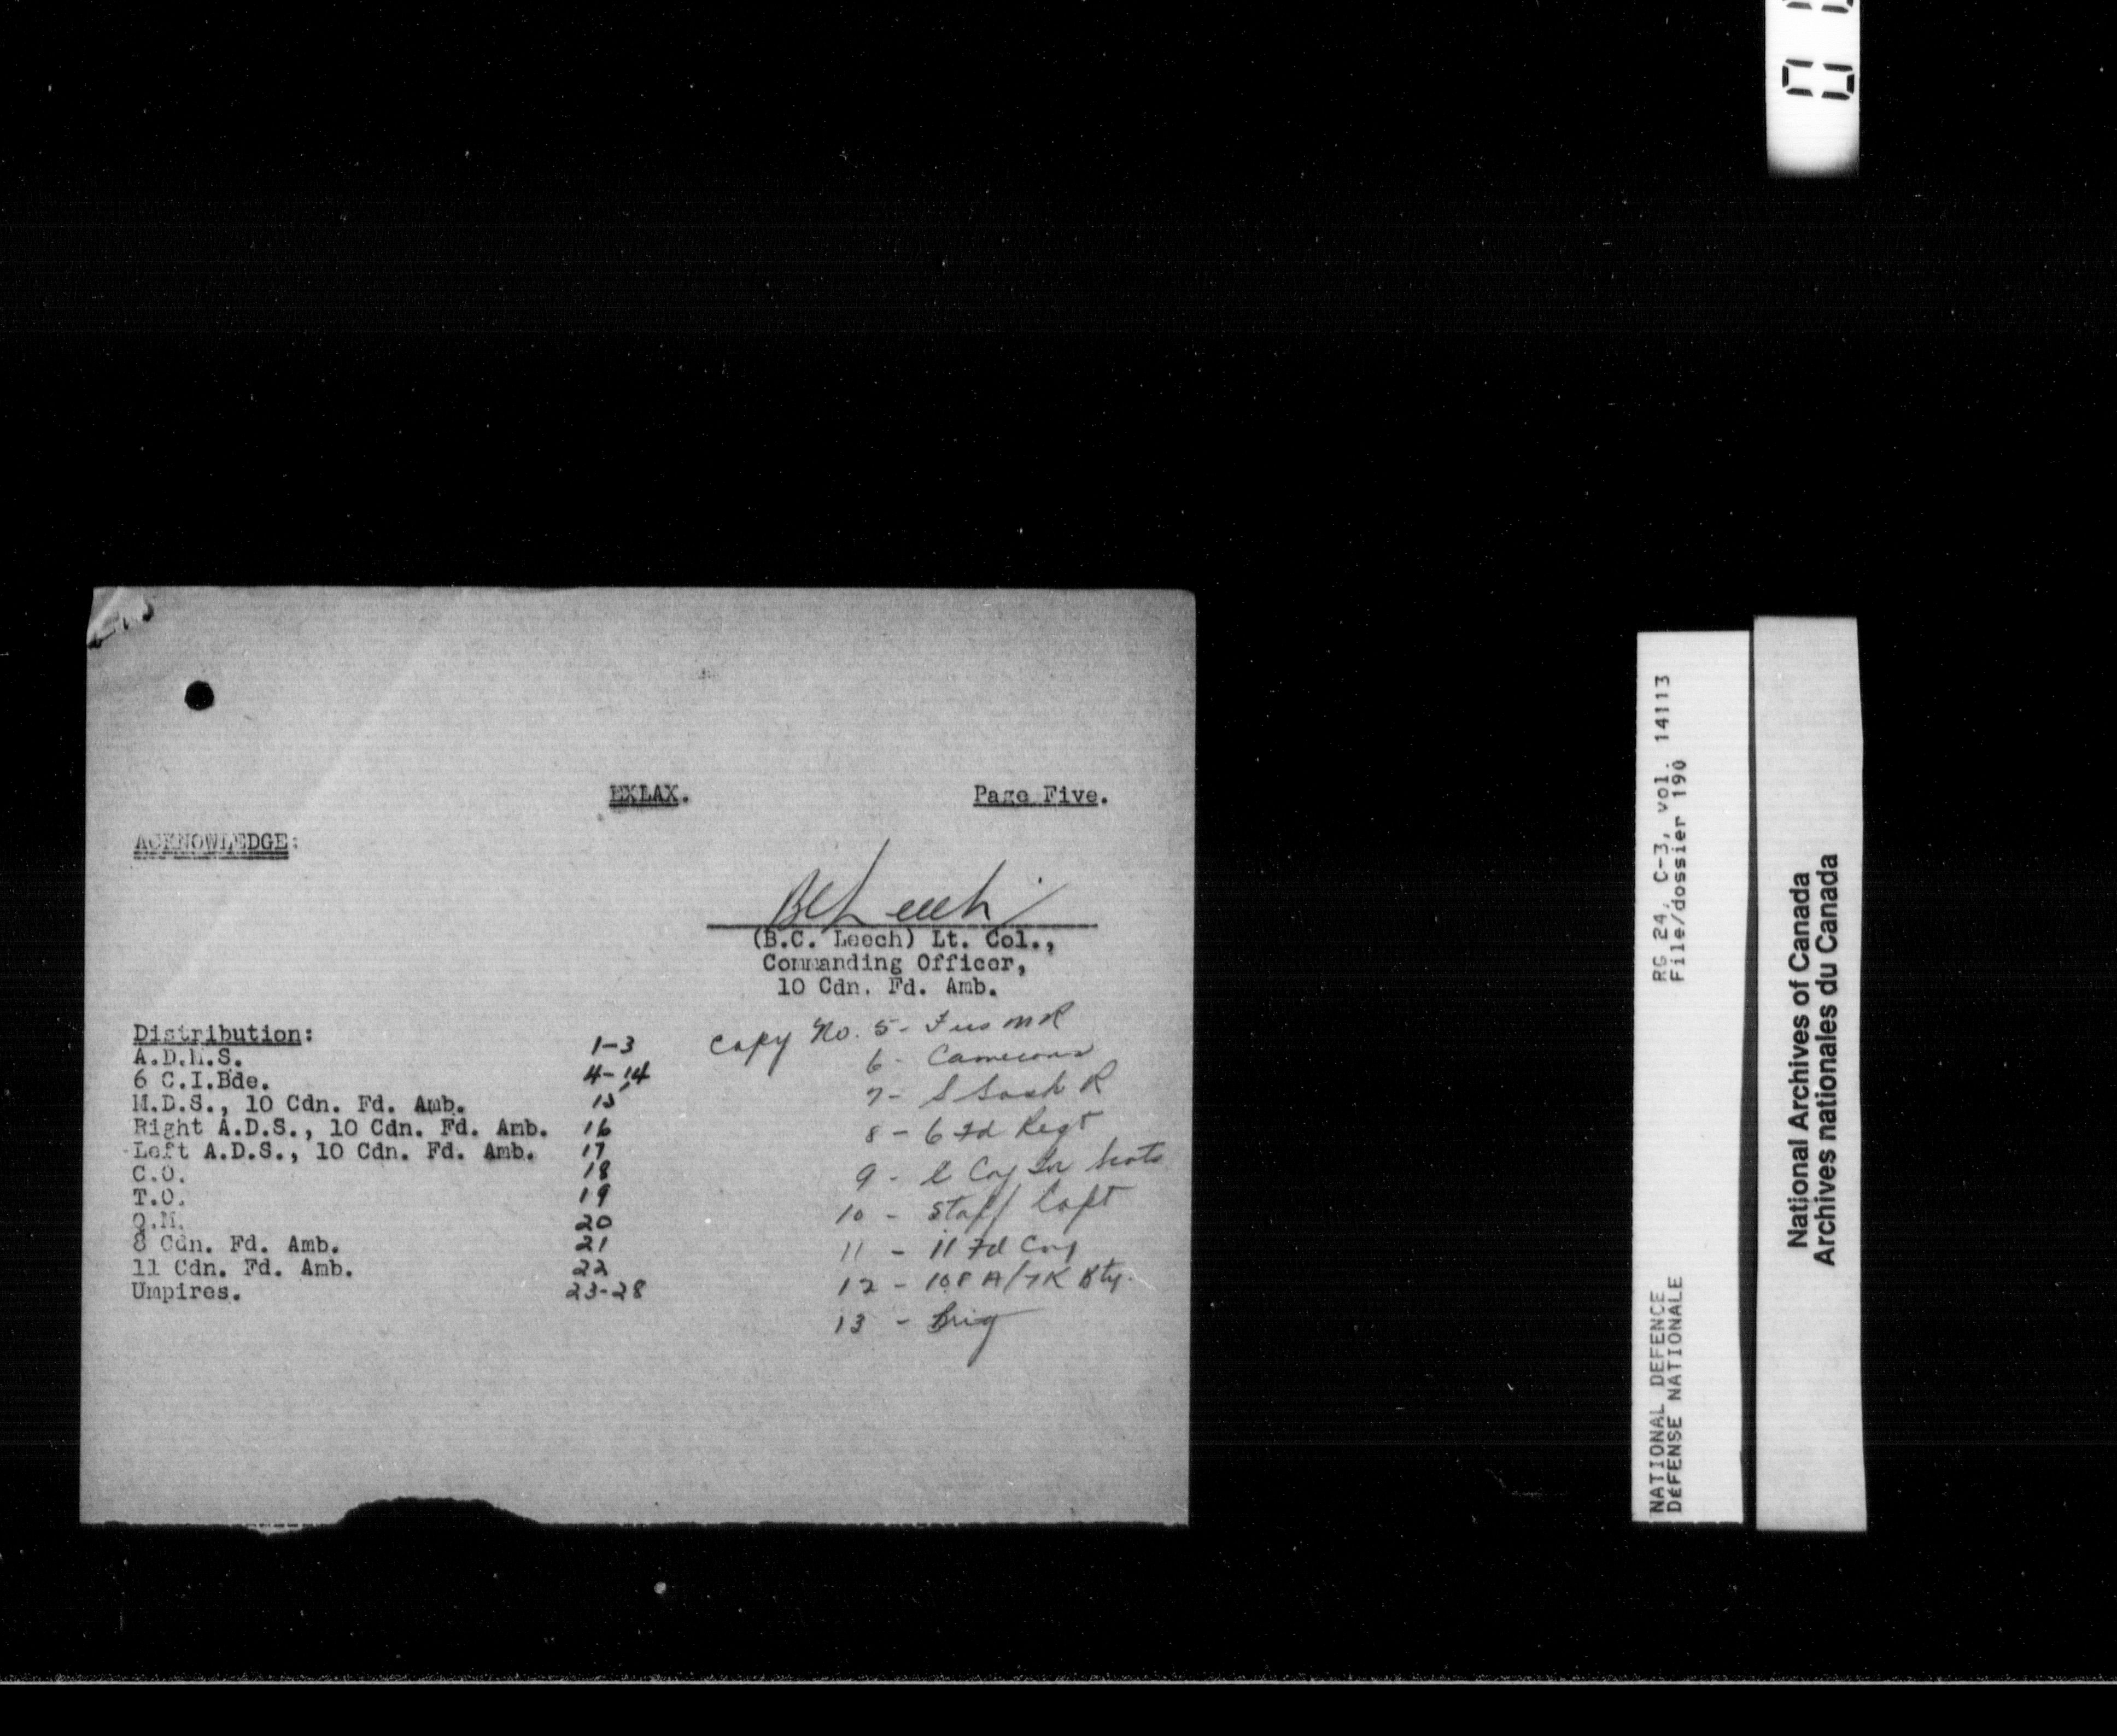 EXLAX. Page Five.
ACKNOWLEDGE:
BC Leech
(B.C. Leech) Lt. Col.,
Commanding Officer,
10 Cdn. Fd. Amb.
Distribution:
A.D.M.S. 1-3
6 C.I.Bde. 4-14
M.D.S., 10 Cdn. Fd. Amb. 15
Right A.D.S., 10 Cdn. Fd. Amb. 16
Left A.D.S., 10 Cdn. Fd. Amb. 17
C.O. 18
T.O. 19
Q.M. 20
8 Cdn. Fd. Amb. 21
11 Cdn. Fd. Amb. 22
Umpires. 23-28
Copy No. 5 - Fus M R
6 - Camerons
7 - S Sask R
8 - 6 Fd Regt
9 - Coy Scots
10 - Staff Capt
11 - 11 Fd Coy
12 - 108 A/TK Bty.
13 - Brig
RG 24, C-3, vol. 14113
File/dossier 190
NATIONAL DEFENCE
DÉFENSE NATIONALE
National Archives of Canada
Archives nationales du Canada